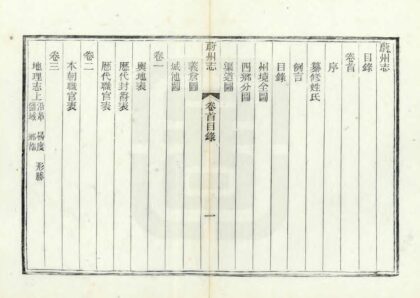 蔚州志
目錄
卷首
序
纂修姓氏
例言
目錄
州境全圖
四鄉分圖
渠道圖
義倉圖
城池圖
蔚州志 卷首目錄 一
卷一
輿地表
歷代封爵表
歷代職官表
卷二
本朝職官表
卷三
地理志上 沿革 晷度 形勝
疆域 鄉